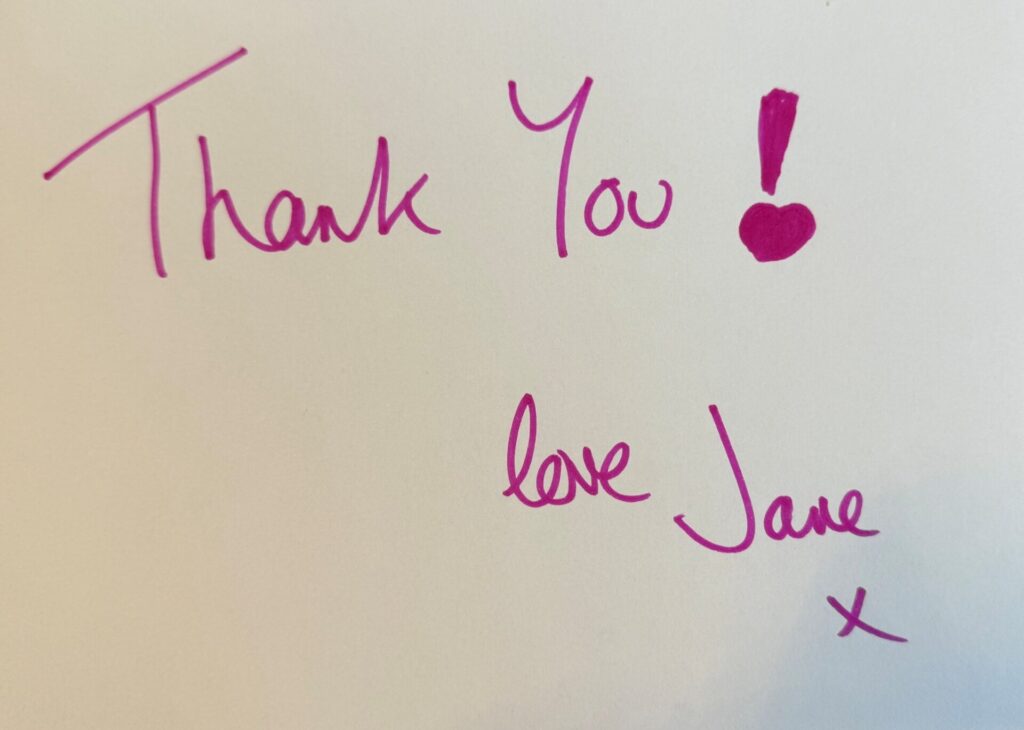 Thank You!
love Jane
x